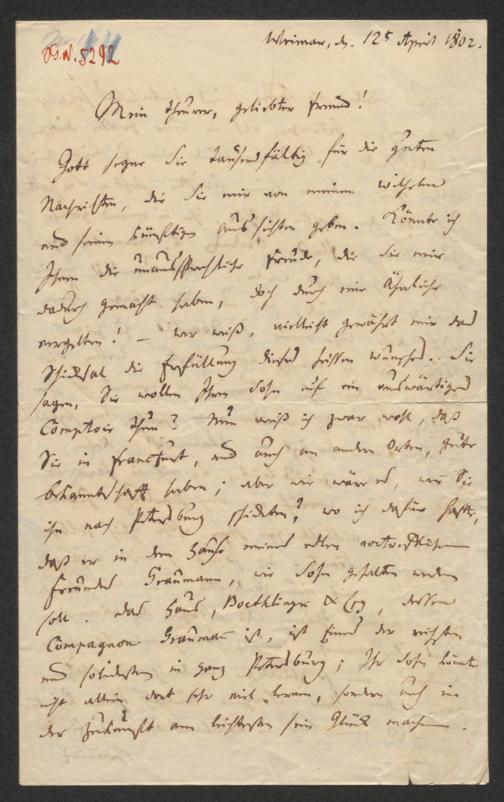 J.N. 5292
Weimar, d. 12t April 1802.
Mein theurer, geliebter Freund!
Gott segne Sie tausendfältig für die guten
Nachrichten, die Sie mir von meinem Wilhelm
und seinen künftigen Aussichten geben. Könnte ich
Ihnen die unaussprechliche Freude, die Sie mir
dadurch gemacht haben, doch durch eine Ähnliche
vergelten! – wer weiß, vielleicht gewährt mir das
Schicksal die Erfüllung dieses heissen Wunsches. Sie
sagen, Sie wollen Ihren Sohn auf ein auswärtiges
Comptoir thun? Nun weiß ich zwar wohl, daß
Sie in Francfurt, und auch an andern Orten, gute
bekanntschafft haben; aber wie wäre es, wenn Sie
ihn nach Petersburg schickten?, wo ich dafür hafte,
daß er in dem Hause meines edlen vortrefflichen
Freundes Graumann, wie Sohn gehalten werden
soll. das Haus, Boethlingk & Co, dessen
Compagnon Graumann ist, ist Eines der reichsten
und solidesten in ganz Petersburg; Ihr Sohn könnte
nicht allein dort sehr viel lernen, sondern auch in
der Zukunft am leichtesten sein Glück machen.